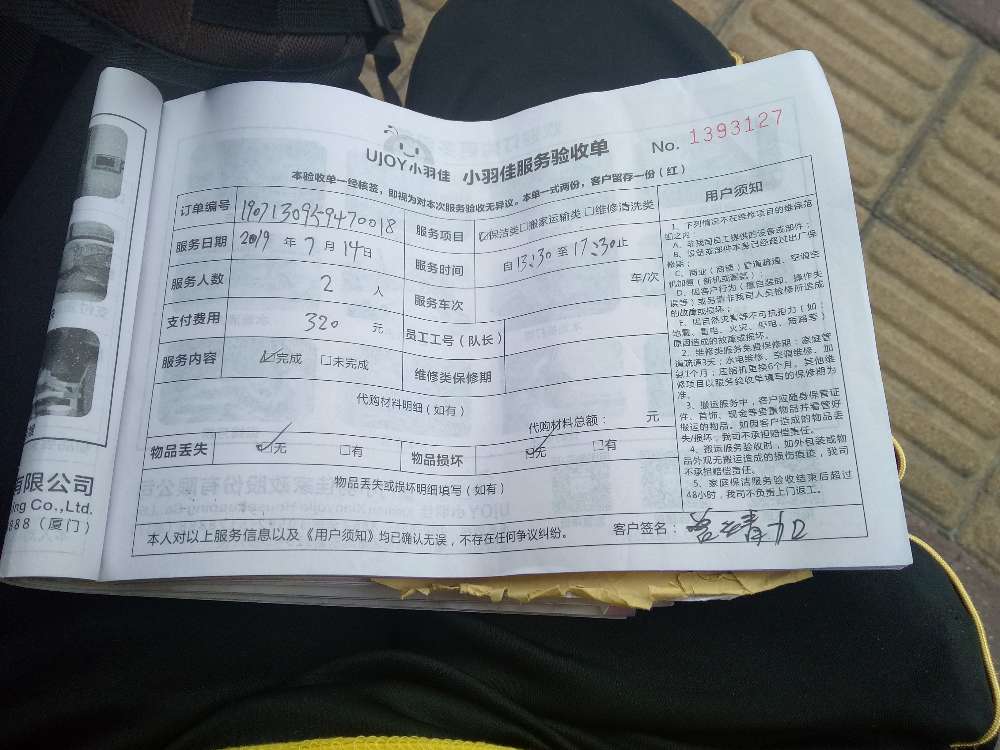 UJOY小羽佳 小羽佳服务验收单 No. 1393127
本验收单一经核签，即视为对本次服务验收无异议。本单一式两份，客户留存一份（红）
订单编号
服务项目 ☑保洁类 □搬家运输类 □维修清洗类
服务日期 2019 年 7 月 14 日
服务时间 自 13:30 至 17:30 止
服务人数 2 人
服务车次 车/次
支付费用 320 元
员工工号（队长）
服务内容 ☑完成 □未完成
维修类保修期
代购材料明细（如有）
代购材料总额： 元
物品丢失 ☑无 □有
物品损坏 ☑无 □有
物品丢失或损坏明细填写（如有）
本人对以上服务信息以及《用户须知》均已确认无误，不存在任何争议纠纷。
客户签名：
用户须知
1、下列情况不在维修项目的维保范
围之内：
A、非我司员工提供的设备或部件；
B、设备或部件本身已经超过出厂保
修期；
C、商业（商铺）管道疏通、空调
D、因客户行为（擅自装卸、操作失
误等）或另请非我司人员检修所造成
的故障或损坏；
E、因自然灾害等不可抗拒力（如：
地震、雷电、火灾、短路等）
原因造成的故障或损坏。
2、维修类服务免费保修期：家庭管
道疏通3天；水电维修、空调维修、加
氟1个月；压缩机更换6个月。其他维
修项目以服务验收单填写的保修期为
准。
3、搬运服务中，客户应随身保管证
件、首饰、现金等贵重物品并看管好
搬运的物品。如因客户造成的物品丢
失/损坏，我司不承担赔偿责任。
4、搬运服务验收时，如外包装或物
品外观无搬运造成的损伤痕迹，我司
不承担赔偿责任。
5、家庭保洁服务验收结束后超过
48小时，我司不负责上门返工。
有限公司
ing Co.,Ltd.
888（厦门）